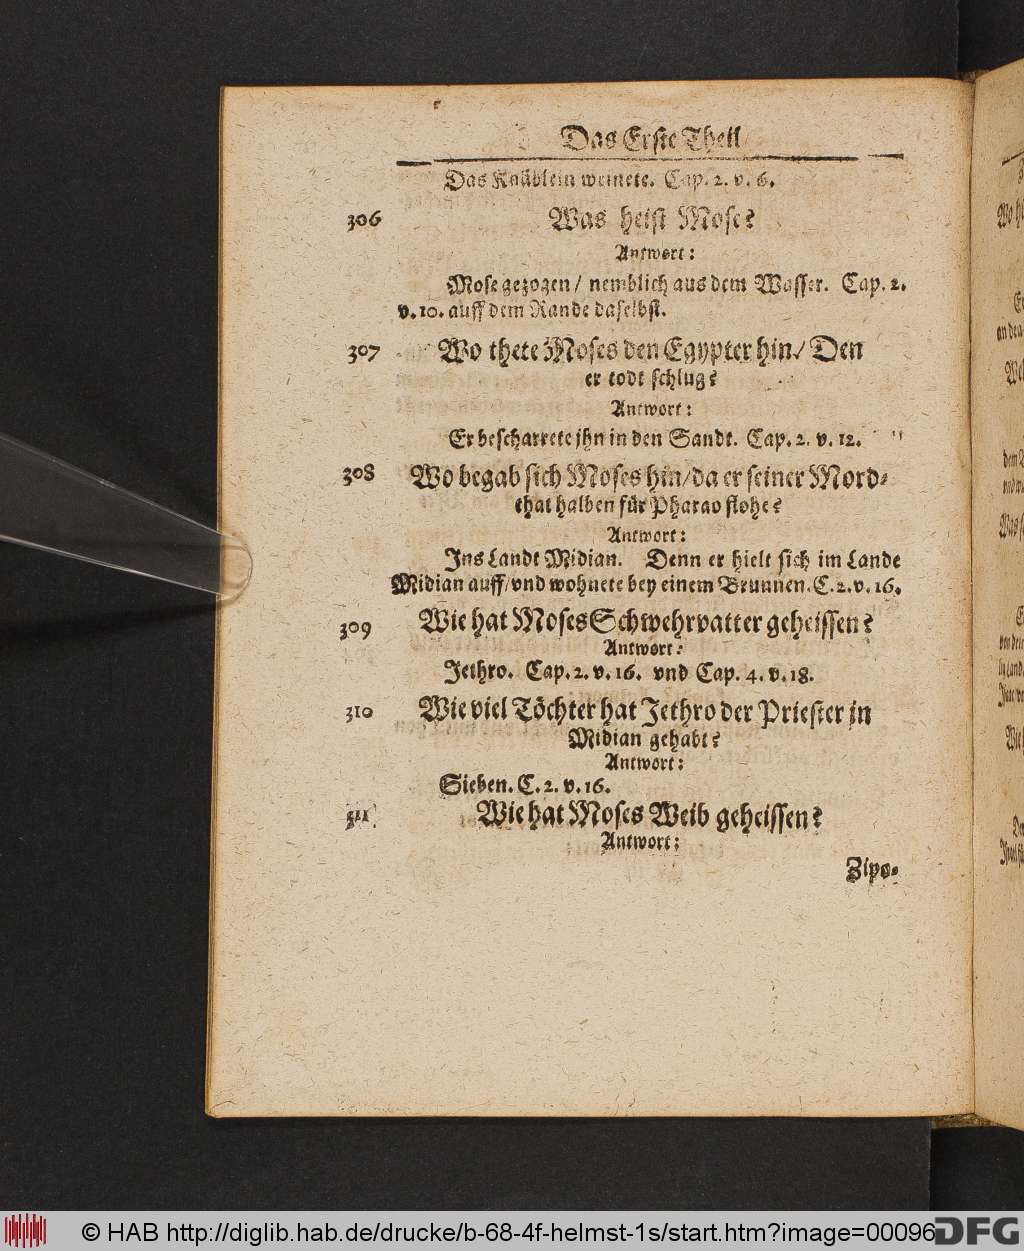 Das Erste Theil
Das Knäblein weinete. Cap. 2. v. 6.
306 Was heist Mose?
Antwort:
Mose gezogen / nemblich aus dem Wasser. Cap. 2.
v. 10. auff dem Rande daselbst.
307 Wo thete Moses den Egypter hin / Den
er todt schlug?
Antwort:
Er bescharrete jhn in den Sandt. Cap. 2. v. 12.
308 Wo begab sich Moses hin / da er seiner Mord-
that halben für Pharao flohe?
Antwort:
Ins Landt Midian. Denn er hielt sich im Lande
Midian auff / vnd wohnete bey einem Brunnen. C. 2. v. 16.
309 Wie hat Moses Schwehrvatter geheissen?
Antwort:
Jethro. Cap. 2. v. 16. vnd Cap. 4. v. 18.
310 Wie viel Töchter hat Jethro der Priester in
Midian gehabt?
Antwort:
Sieben. C. 2. v. 16.
311 Wie hat Moses Weib geheissen?
Antwort:
Zipo-
© HAB http://diglib.hab.de/drucke/b-68-4f-helmst-1s/start.htm?image=00096
DFG